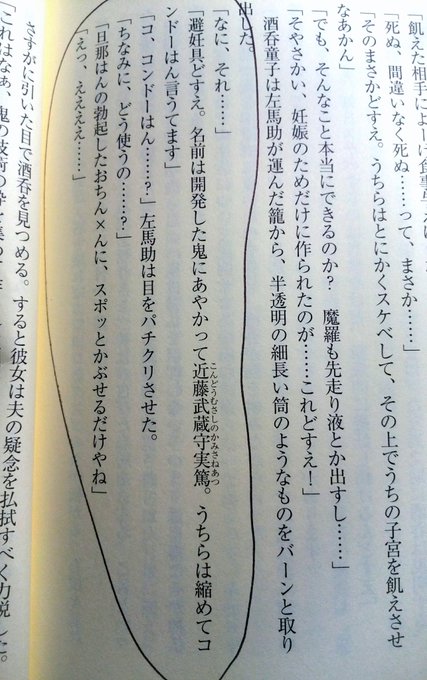 飢えた相手によーけ食事
「死ぬ、間違いなく死ぬ……って、まさか……」
「そのまさかどすえ。うちらはとにかくスケベして、その上でうちの子宮を飢えさせ
なあかん」
「でも、そんなこと本当にできるのか?　魔羅も先走り液とか出すし……」
「そやさかい、妊娠のためだけに作られたのが……これどすえ!」
酒呑童子は左馬助が運んだ籠から、半透明の細長い筒のようなものをバーンと取り
出した。
「なに、それ……」
「避妊具どすえ。名前は開発した鬼にあやかって近藤武蔵守実篤。うちらは縮めてコ
こんどうむさしのかみさねあつ
ンドーはん言うてます」
「コ、コンドーはん……?」左馬助は目をパチクリさせた。
「ちなみに、どう使うの……?」
「旦那はんの勃起したおちん×んに、スポッとかぶせるだけやね」
「えっ、ええええ……」
さすがに引いた目で酒呑を見つめる。すると彼女は夫の疑念を払拭すべく力説した。
「これはなぁ、鬼の技術の粋を集